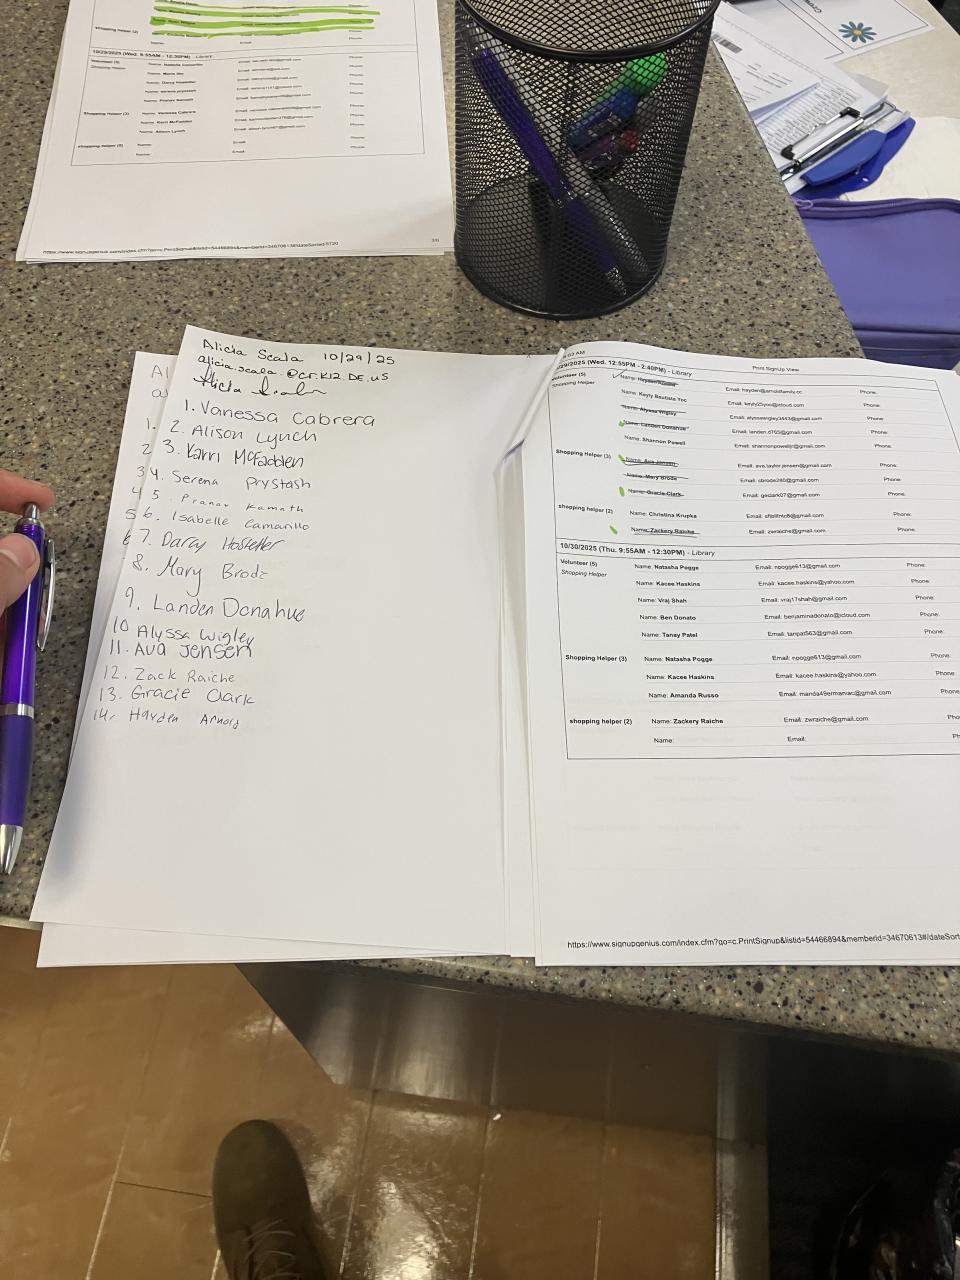 shopping helper (2)
Name:
Email:
Phone:
10/29/2025 (Wed. 9:55AM - 12:30PM) - Library
Volunteer (5)
Shopping Helper
Name: Maria Ille
Phone:
Name: Darcy Hostetter
Phone:
Name: serena prystash
Phone:
Name: Pranav Kamath
Phone:
Shopping Helper (3)
Name: Vanessa Cabrera
Phone:
Name: Karri McFadden
Phone:
Name: Alison Lynch
Phone:
shopping helper (2)
Name:
Email:
Phone:
Name:
Email:
Phone:
https://www.signupgenius.com/index.cfm?go=c.PrintSignup&listid=54466894&memberid=34670613#/dateSorted/5720
Alicia Scala 10/29/25
alicia.scala@cr.k12.DE.US
Alicia Scala
1. Vanessa Cabrera
2. Alison Lynch
3. Karri McFadden
4. Serena Prystash
5. Pranav Kamath
6. Isabelle Camarillo
7. Darcy Hostetter
8. Mary Brode
9. Landen Donahue
10 Alyssa Wigley
11. Ava Jensen
12. Zack Raiche
13. Gracie Clark
14. Hayden Arnold
Al
1.
2
3
4
5
6
:03 AM
Print SignUp View
/29/2025 (Wed. 12:55PM - 2:40PM) - Library
Volunteer (5)
Shopping Helper
Name: Hayden Arnold Email: hayden@arnoldfamily.cc Phone:
Name: Keyly Bautista Yoc Email: keyly25yoc@icloud.com Phone:
Name: Alyssa Wigley Email: alyssawigley3443@gmail.com Phone:
Name: Landen Donahue Email: landen.6765@gmail.com Phone:
Name: Shannon Powell Email: shannonpowelljr@gmail.com Phone:
Shopping Helper (3) Name: Ava Jensen Email: ava.taylor.jensen@gmail.com Phone:
Name: Mary Brode Email: cbrode280@gmail.com Phone:
Name: Gracie Clark Email: geclark07@gmail.com Phone:
shopping helper (2) Name: Christina Krupka Phone:
Name: Zackery Raiche Email: zwraiche@gmail.com Phone:
10/30/2025 (Thu. 9:55AM - 12:30PM) - Library
Volunteer (5) Name: Natasha Pogge Email: npogge613@gmail.com Phone:
Shopping Helper
Name: Kacee Haskins Email: kacee.haskins@yahoo.com Phone:
Name: Vraj Shah Email: vraj17shah@gmail.com Phone:
Name: Ben Donato Email: benjaminadonato@icloud.com Phone:
Name: Tanay Patel Email: tanpat563@gmail.com Phone:
Shopping Helper (3) Name: Natasha Pogge Email: npogge613@gmail.com Phone:
Name: Kacee Haskins Email: kacee.haskins@yahoo.com Phone:
Name: Amanda Russo Email: manda49ermaniac@gmail.com Phone:
shopping helper (2) Name: Zackery Raiche Email: zwraiche@gmail.com Pho
Name: Email: Ph
https://www.signupgenius.com/index.cfm?go=c.PrintSignup&listid=54466894&memberid=34670613#/dateSort